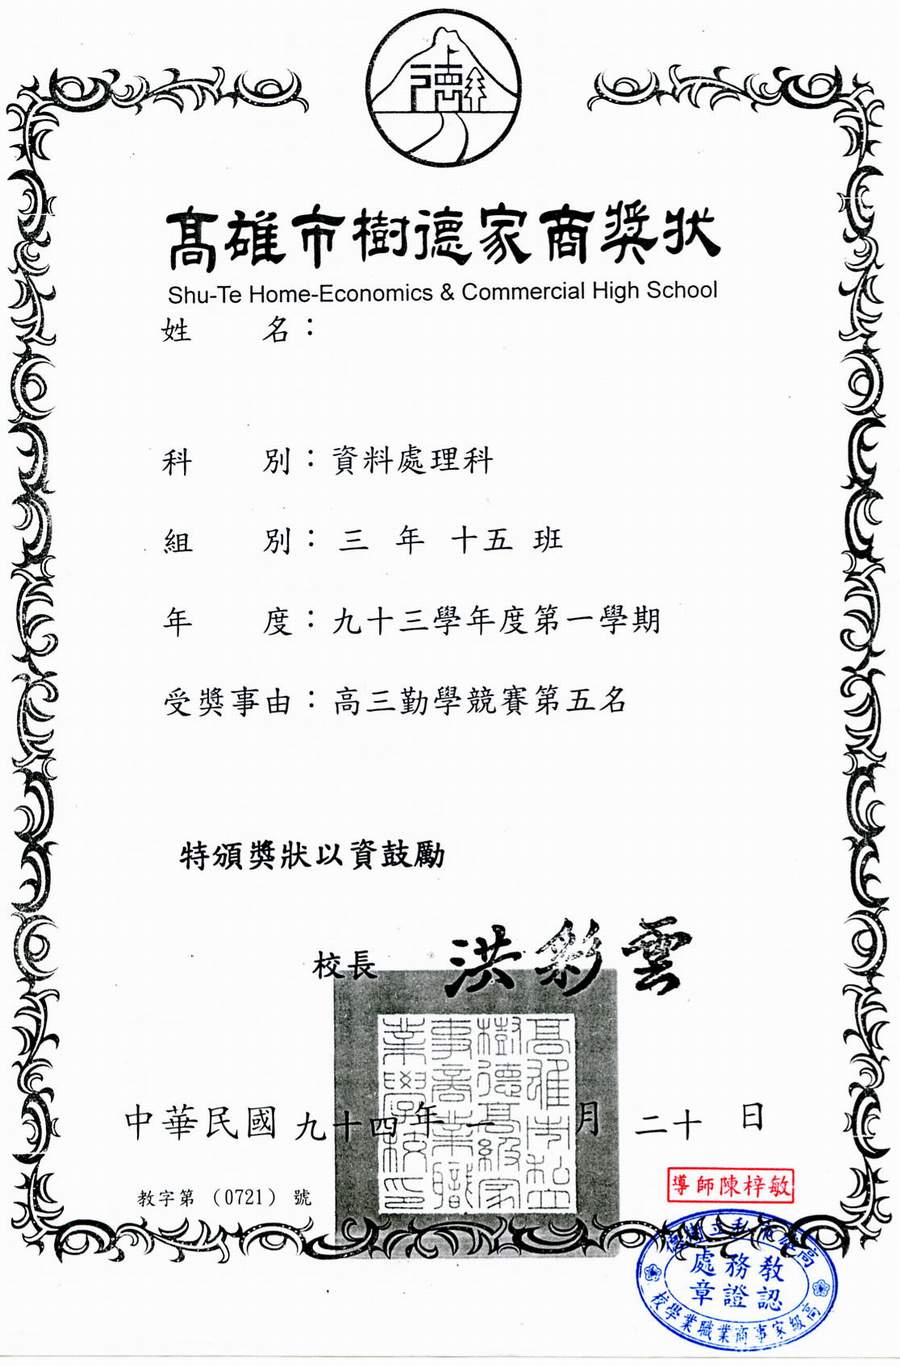 高雄市樹德家商獎狀
Shu-Te Home-Economics & Commercial High School
姓　　名：
科　　別：資料處理科
組　　別：三 年 十五 班
年　　度：九十三學年度第一學期
受獎事由：高三勤學競賽第五名
特頒獎狀以資鼓勵
校長 洪彩雲
高雄市私立樹德高級家事商業職業學校印
中華民國 九十四 年 一 月 二十 日
教字第 (0721) 號
導師陳梓敏
高雄市私立樹德
教務處
認證章
高級家事商業職業學校